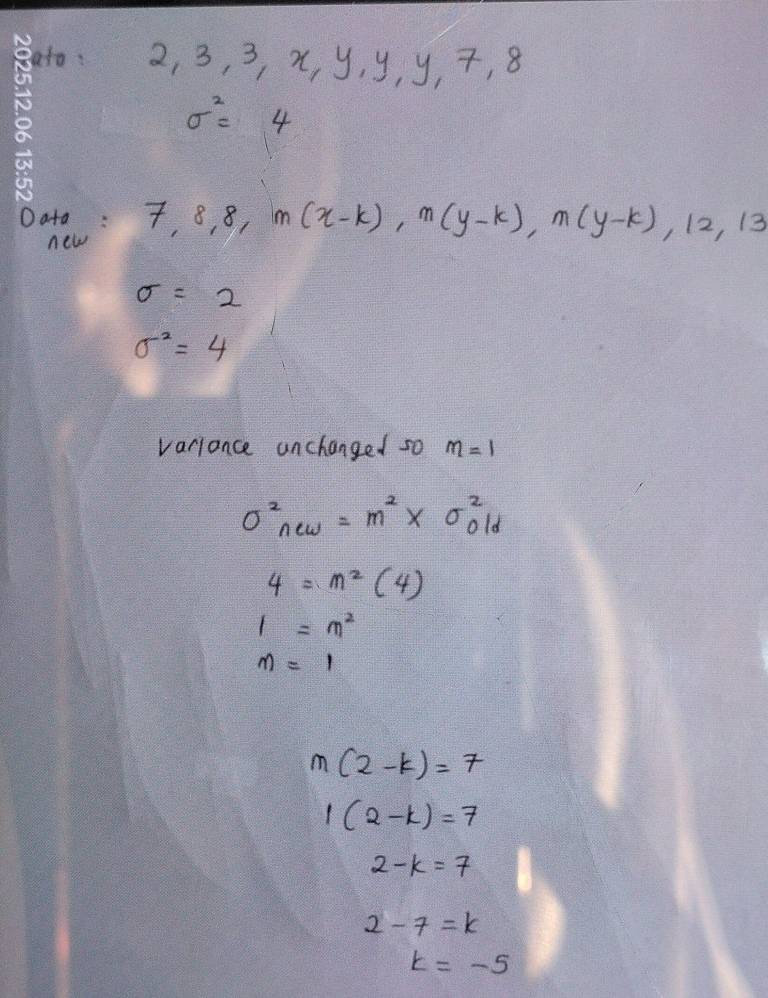 2025.12.06 13:52
Data : 2, 3, 3, x, y, y, y, 7, 8
σ² = 4
Data new : 7, 8, 8, m(x-k), m(y-k), m(y-k), 12, 13
σ = 2
σ² = 4
variance unchanged so m=1
σ² new = m² × σ² old
4 = m² (4)
1 = m²
m = 1
m(2-k) = 7
1(2-k) = 7
2-k = 7
2-7 = k
k = -5